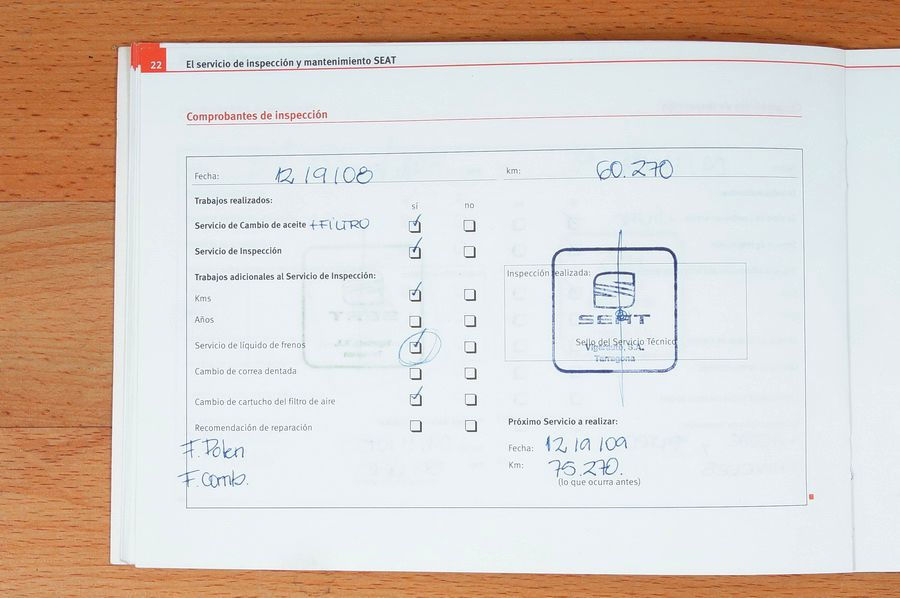 22 El servicio de inspección y mantenimiento SEAT
Comprobantes de inspección
Fecha: 12/9/08 km: 60.270
Trabajos realizados: sí no
Servicio de Cambio de aceite +FILTRO
Servicio de Inspección
Trabajos adicionales al Servicio de Inspección:
Kms
Años
Servicio de líquido de frenos
Cambio de correa dentada
Cambio de cartucho del filtro de aire
Recomendación de reparación
F. Polen
F. comb.
Inspección realizada:
SEAT
Sello del Servicio Técnico
Tarragona
Próximo Servicio a realizar:
Fecha: 12/9/09
Km: 75.270.
(lo que ocurra antes)